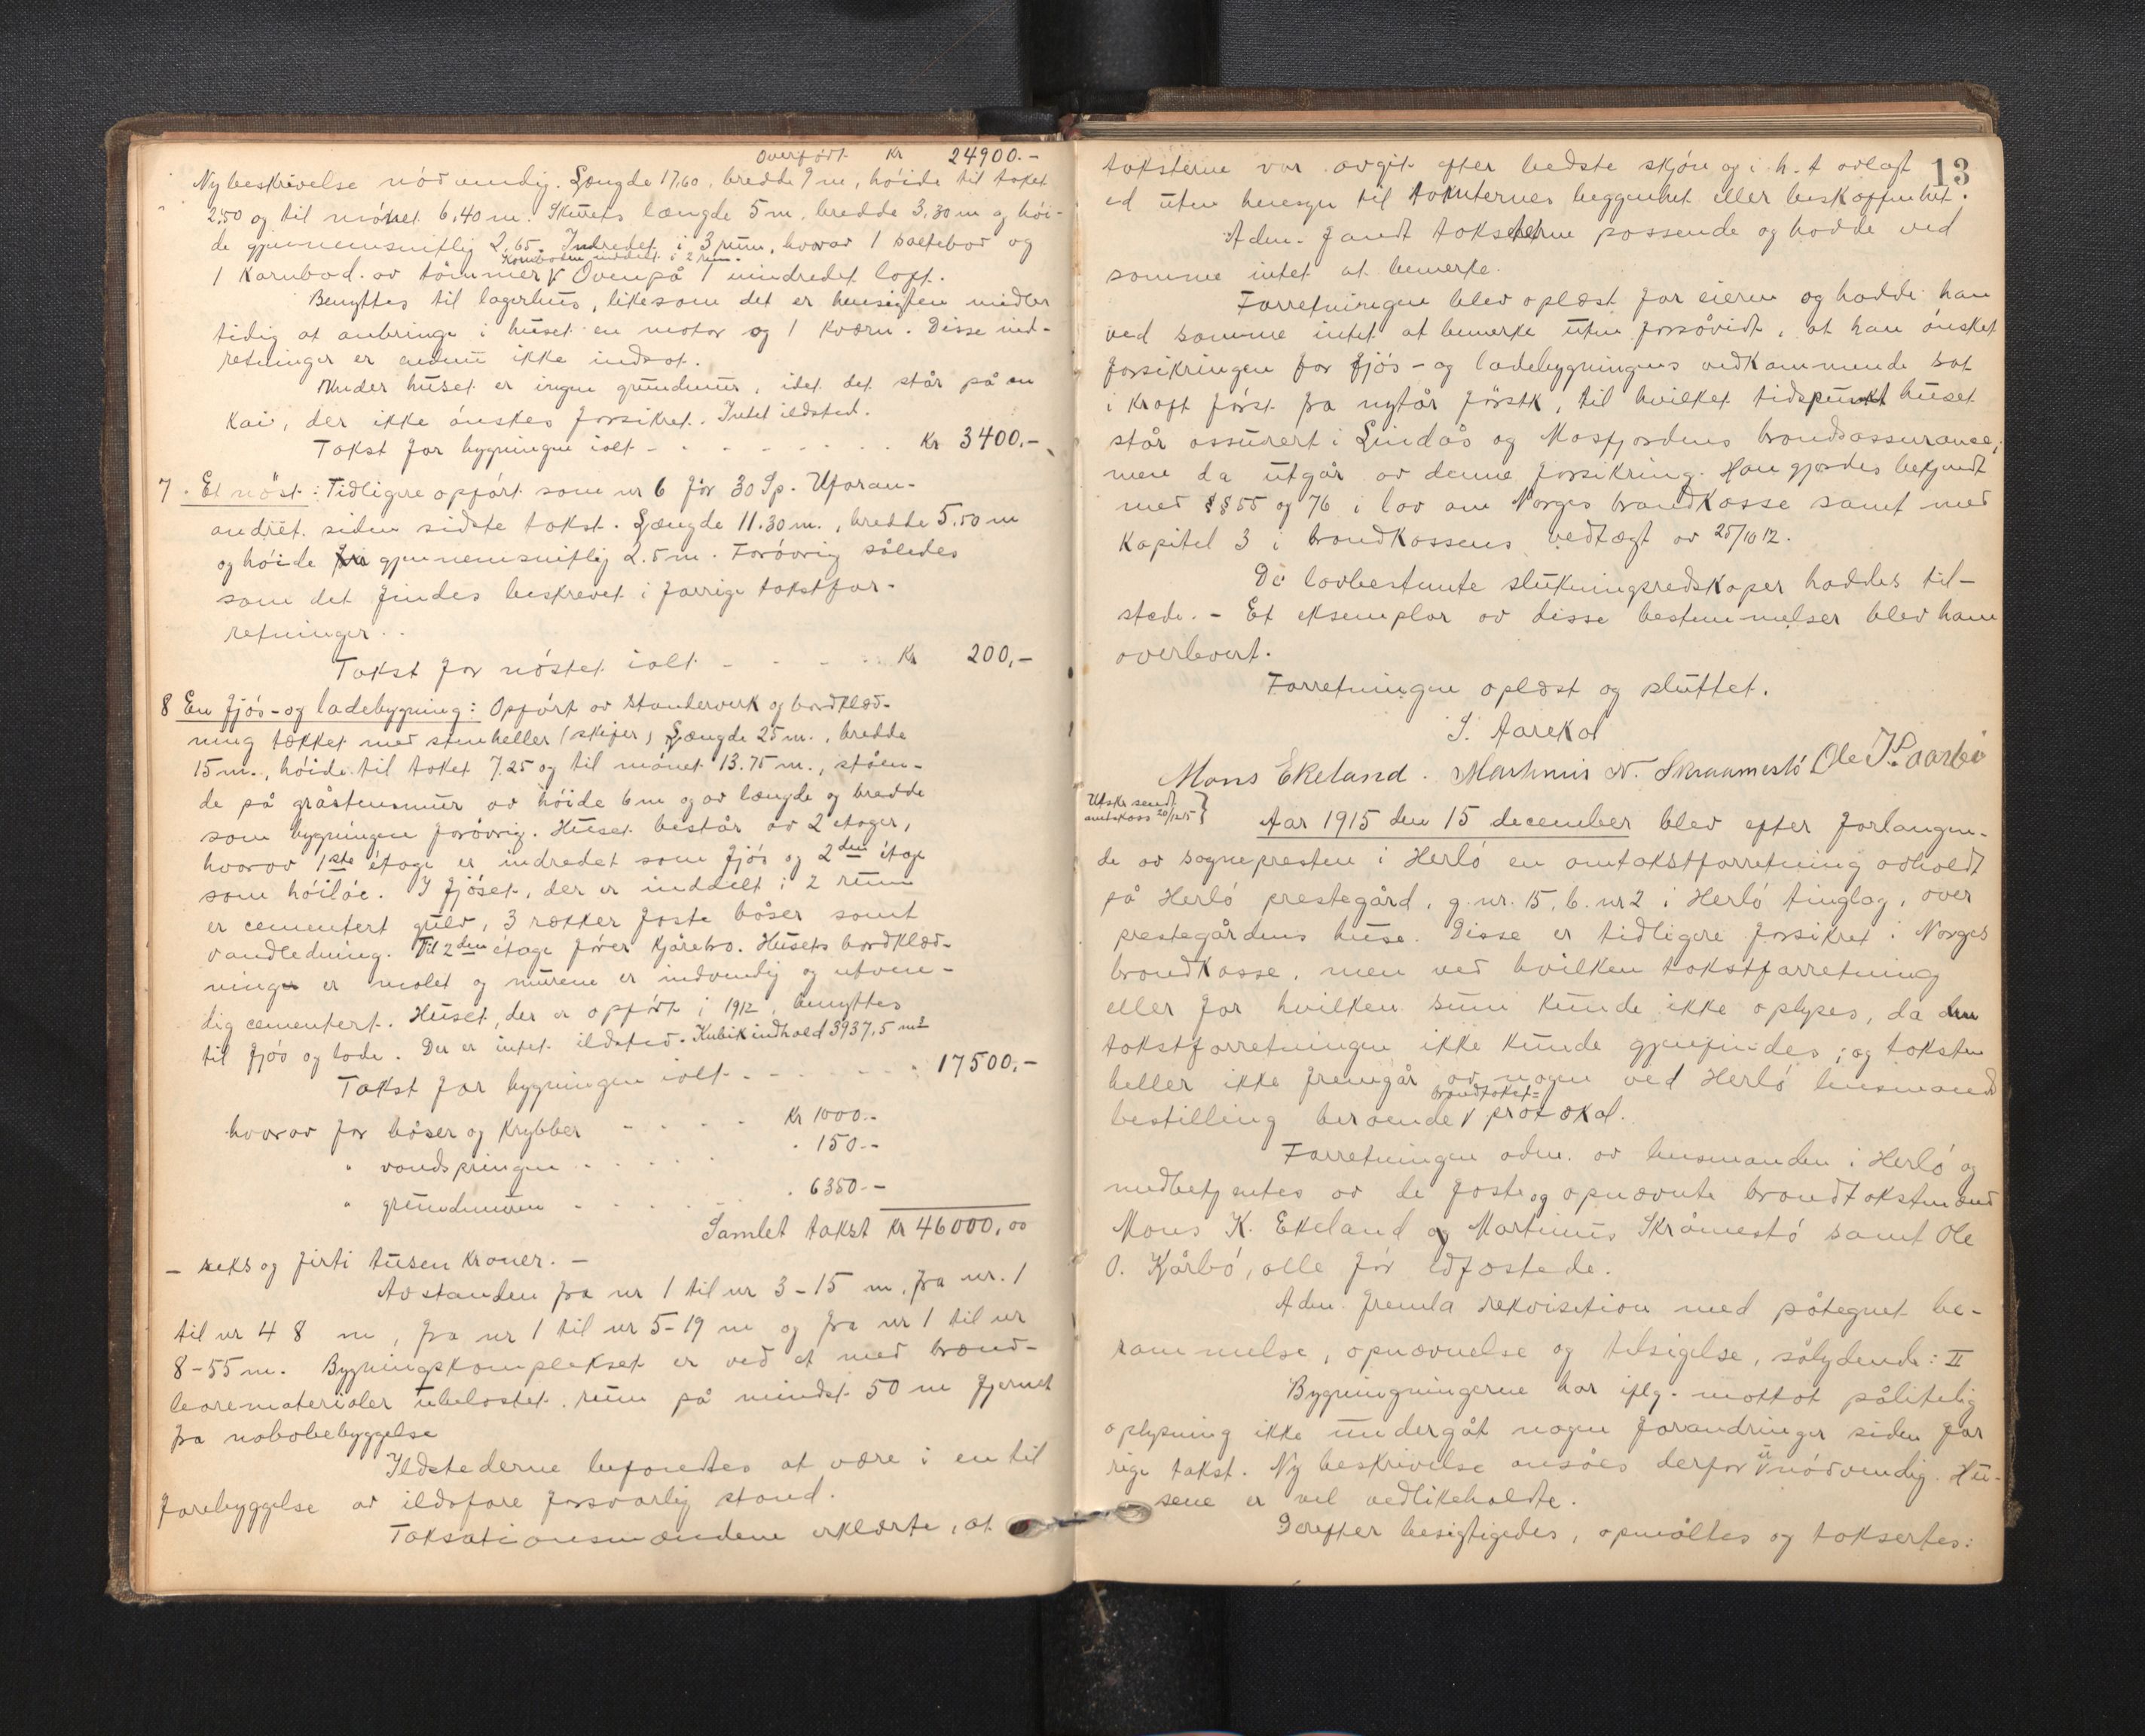 Overført Kr 24900.-
Ny beskrivelse nødvendig. Længde 17.60, bredde 9 m, høide til taket
2.50 og til mønet 6.40 m. Skurets længde 5 m, bredde 3.30 m og høi-
de gjennemsnitlig 2.65. Indredet i 3 rum, hvorav 1 saltebod og
Kornboden inddelt i 2 rum.
1 Kornbod av tømmer V Ovenpå 1 uindredet loft.
Benyttes til lagerhus, likesom det er hensigten midler
tidig at anbringe i huset en motor og 1 Kværn. Disse ind-
retninger er ændnu ikke indsat.
Under huset er ingen grundmur, idet det står på en
Kai, der ikke ønskes forsikret. Intet ildsted.
Takst for bygningen ialt - - - Kr 3400,-
7. Et nøst: Tidligere opført som nr 6 for 30 Sp. Uforan-
andret siden sidste takst. Længde 11.30 m., bredde 5.50 m
og høide fra gjennemsnitlig 2.5 m. Forøvrig således
som det findes beskrevet i forrige takstfor-
retninger..
Takst for nøstet ialt - - - Kr 200,-
8 En fjøs- og ladebygning: Opført av standerverk og bordklæd-
ning tækket med stenheller (skifer) Længde 25 m., bredde
15 m., høide til taket 7.25 og til mønet 13.75 m., ståen-
de på gråstensmur av høide 6 m og av længde og bredde
som bygningen forøvrig. Huset består av 2 etager,
hvorav 1ste etage er indredet som fjøs og 2den etage
som høiløe. I fjøset, der er inddelt i 2 rum
er cementert gulv, 3 rækker faste båser samt
vandledning. Til 2den etage fører kjørebro. Husets bordklæd-
ning er malet og murene er indvendig og utven-
dig cementert. Huset, der er opført i 1912, benyttes
til fjøs og lade. Der er intet ildsted. Kubikindhold 3937,5 m3
Takst for bygningen ialt - - - 17500,-
hvorav for båser og Krybber - - - Kr 1000.-
" vandspringen - - - " 150.-
" grundmuren - - - " 6350.-
Samlet takst Kr 46000,00
- seks og firti tusen Kroner. -
Avstanden fra nr 1 til nr 3 - 15 m, fra nr. 1
til nr 4 8 m, fra nr 1 til nr 5 - 19 m og fra nr 1 til nr
8 - 55 m. Bygningskomplekset er ved et med brænd-
barematerialer ubelastet rum på mindst 50 m fjernet
fra nabobebyggelse
Ildstederne befandtes at være i en til
forebyggelse av ildsfare forsvarlig stand.
Taksationsmændene erklærte, at
13
taksterne var avgit efter bedste skjøn og i h. t avlagt
ed uten hensyn til tomternes beggenhet eller beskaffenhet.
Adm. fandt taksterne passende og hadde ved
samme intet at bemerke.
Forretningen blev oplæst for eieren og hadde han
ved samme intet at bemerke uten forsåvidt, at han ønsket
forsikringen for fjøs- og ladebygningens vedkommende sat
i Kraft først fra nytår førstk, til hvilket tidspunkt huset
står assurert i Lindås og Masfjordens brandassurance,
men da utgår av denne forsikring. Han gjordes bekjendt
med §§ 55 og 76 i lov om Norges brandkasse samt med
Kapitel 3 i brandkassens vedtægt av 25/10 12.
De lovbestemte slukningsredskaper haddes til-
stede. - Et eksemplar av disse bestemmelser blev ham
overlevert.
Forretningen oplæst og sluttet.
S. Aarekol
Mons Ekeland. Martinius N. Skraamestø Ole Kaarbø
Utskr sendt
amtskass 20/12 15 }
Aar 1915 den 15 december blev efter forlangen-
de av sognepresten i Herlø en omtakstforretning avholdt
på Herlø prestegård, g. nr. 15, b. nr 2 i Herlø tinglag, over
prestegårdens huse. Disse er tidligere forsikret i Norges
brandkasse, men ved hvilken takstforretning
eller for hvilken sum kunde ikke oplyses, da den
takstforretningen ikke kunde gjenfindes; og taksten
heller ikke fremgår av nogen ved Herlø lensmands
brandtakst=
bestilling beroende V protokol.
Forretningen adm. av lensmanden i Herlø og
medbetjentes av de faste og opnævnte brandtakstmænd
Mons K. Ekeland og Martinus Skråmestø samt Ole
O. Kjårbø, alle før edfæstede.
Adm. fremla rekvisition med påtegnet be-
rammelse, opnævnelse og tilsigelse, sålydende: II
Bygningningerne har iflg. mottat pålitelig
oplysning ikke undergåt nogen forandringer siden for
rige takst. Ny beskrivelse ansåes derfor u V nødvendig. Hu-
sene er vel vedlikeholdte.
Derefter besigtigedes, opmåltes og taksertes: